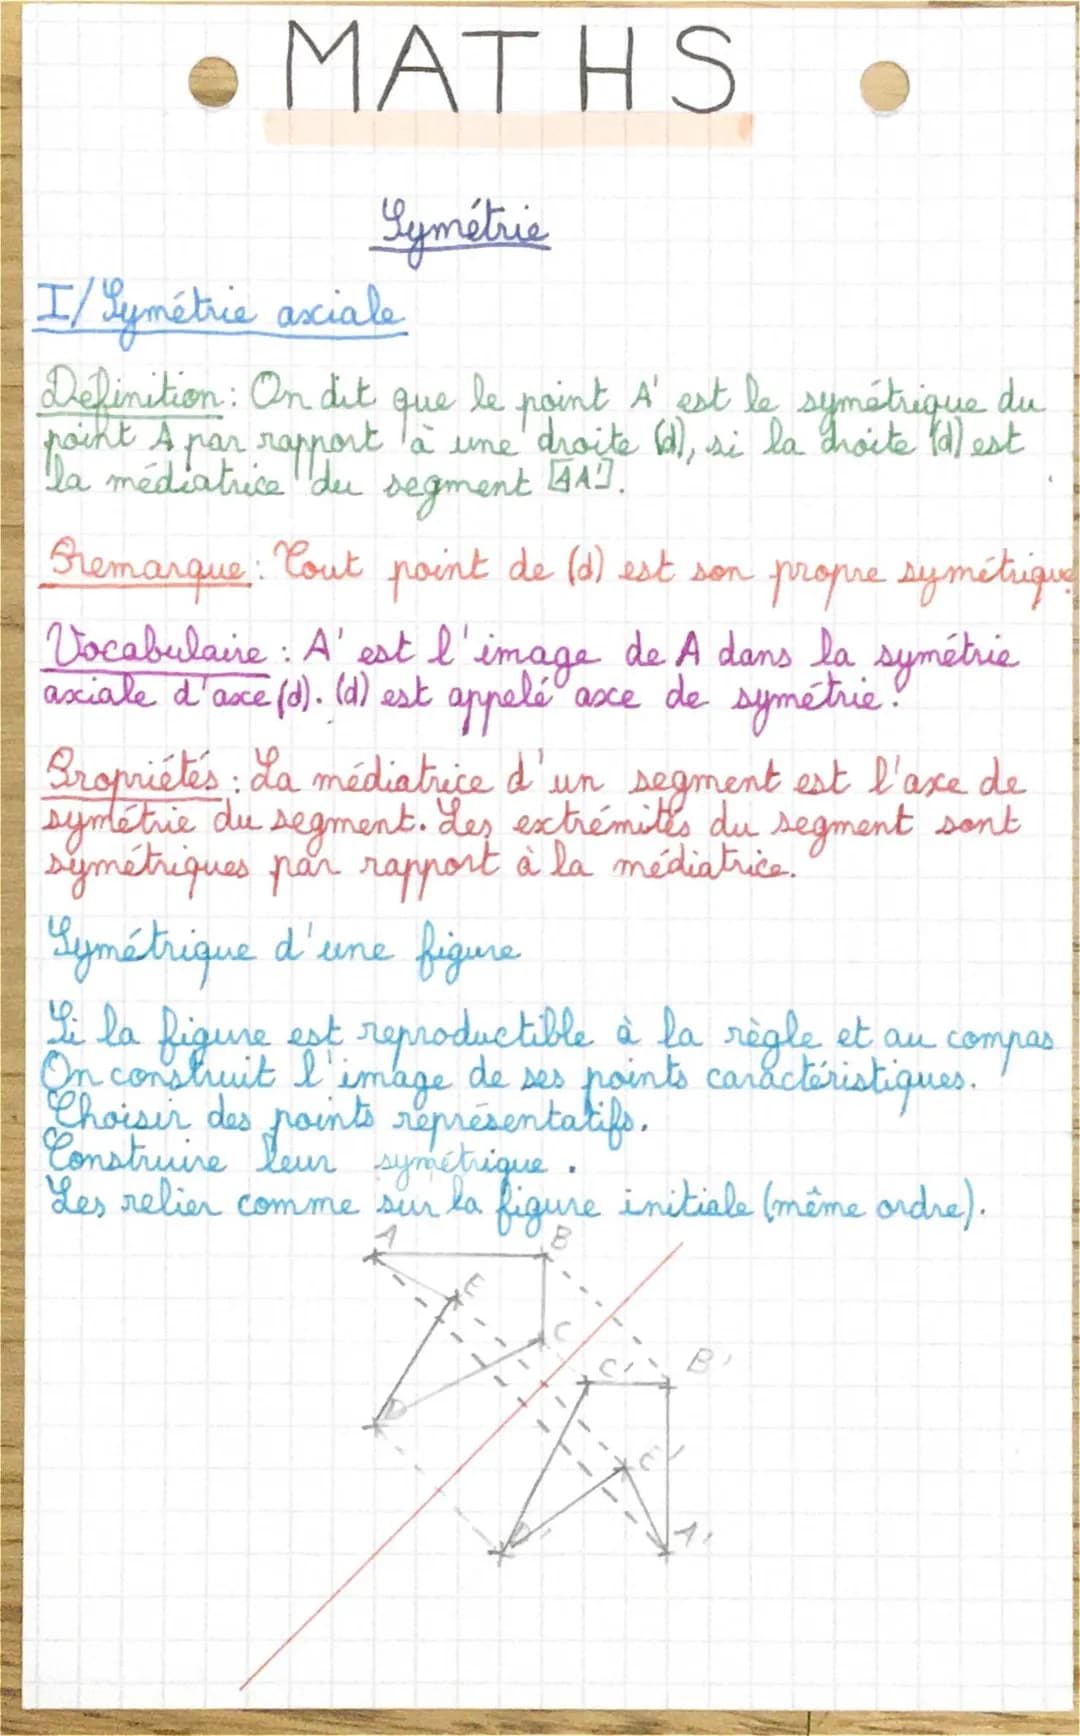 MATHS
Symétrie
I/ Symétrie axciale
Définition : On dit que le point A' est le symétrique du
point A par rapport à une droite (d), si la droite (d) est
la médiatrice du segment [AA'].
Remarque : Tout point de (d) est son propre symétrique
Vocabulaire : A' est l'image de A dans la symétrie
axciale d'axe (d). (d) est appelé axe de symétrie.
Propriétés : La médiatrice d'un segment est l'axe de
symétrie du segment. Les extrémités du segment sont
symétriques par rapport à la médiatrice.
Symétrique d'une figure
Si la figure est reproductible à la règle et au compas
On construit l'image de ses points caractéristiques.
Choisir des points représentatifs.
Construire leur symétrique.
Les relier comme sur la figure initiale (même ordre).
A B
E
C
C' B'
D
E'
D' A'